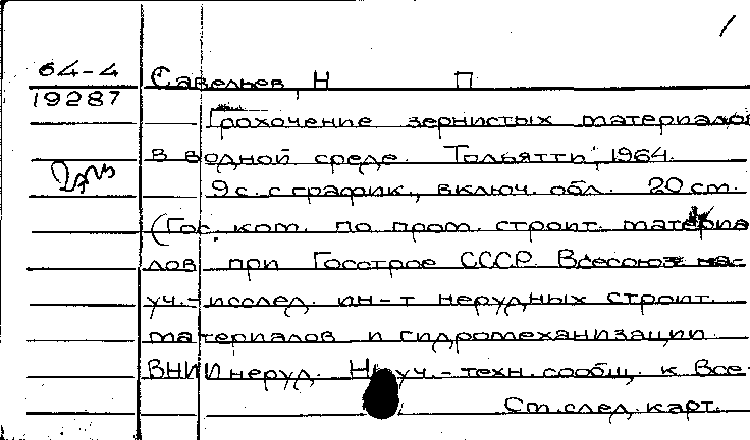 64-4
19287
Савельев, Н П
Грохочение зернистых материалов
в водной среде. Тольятти, 1964.
9 с. с график., включ. обл. 20 см.
(Гос. ком. по пром. строит. материа-
лов при Госстрое СССР. Всесоюз на-
уч.-исслед. ин-т нерудных строит.
материалов и гидромеханизации
ВНИИнеруд. Науч.-техн. сообщ. к Все-
См. след. карт.